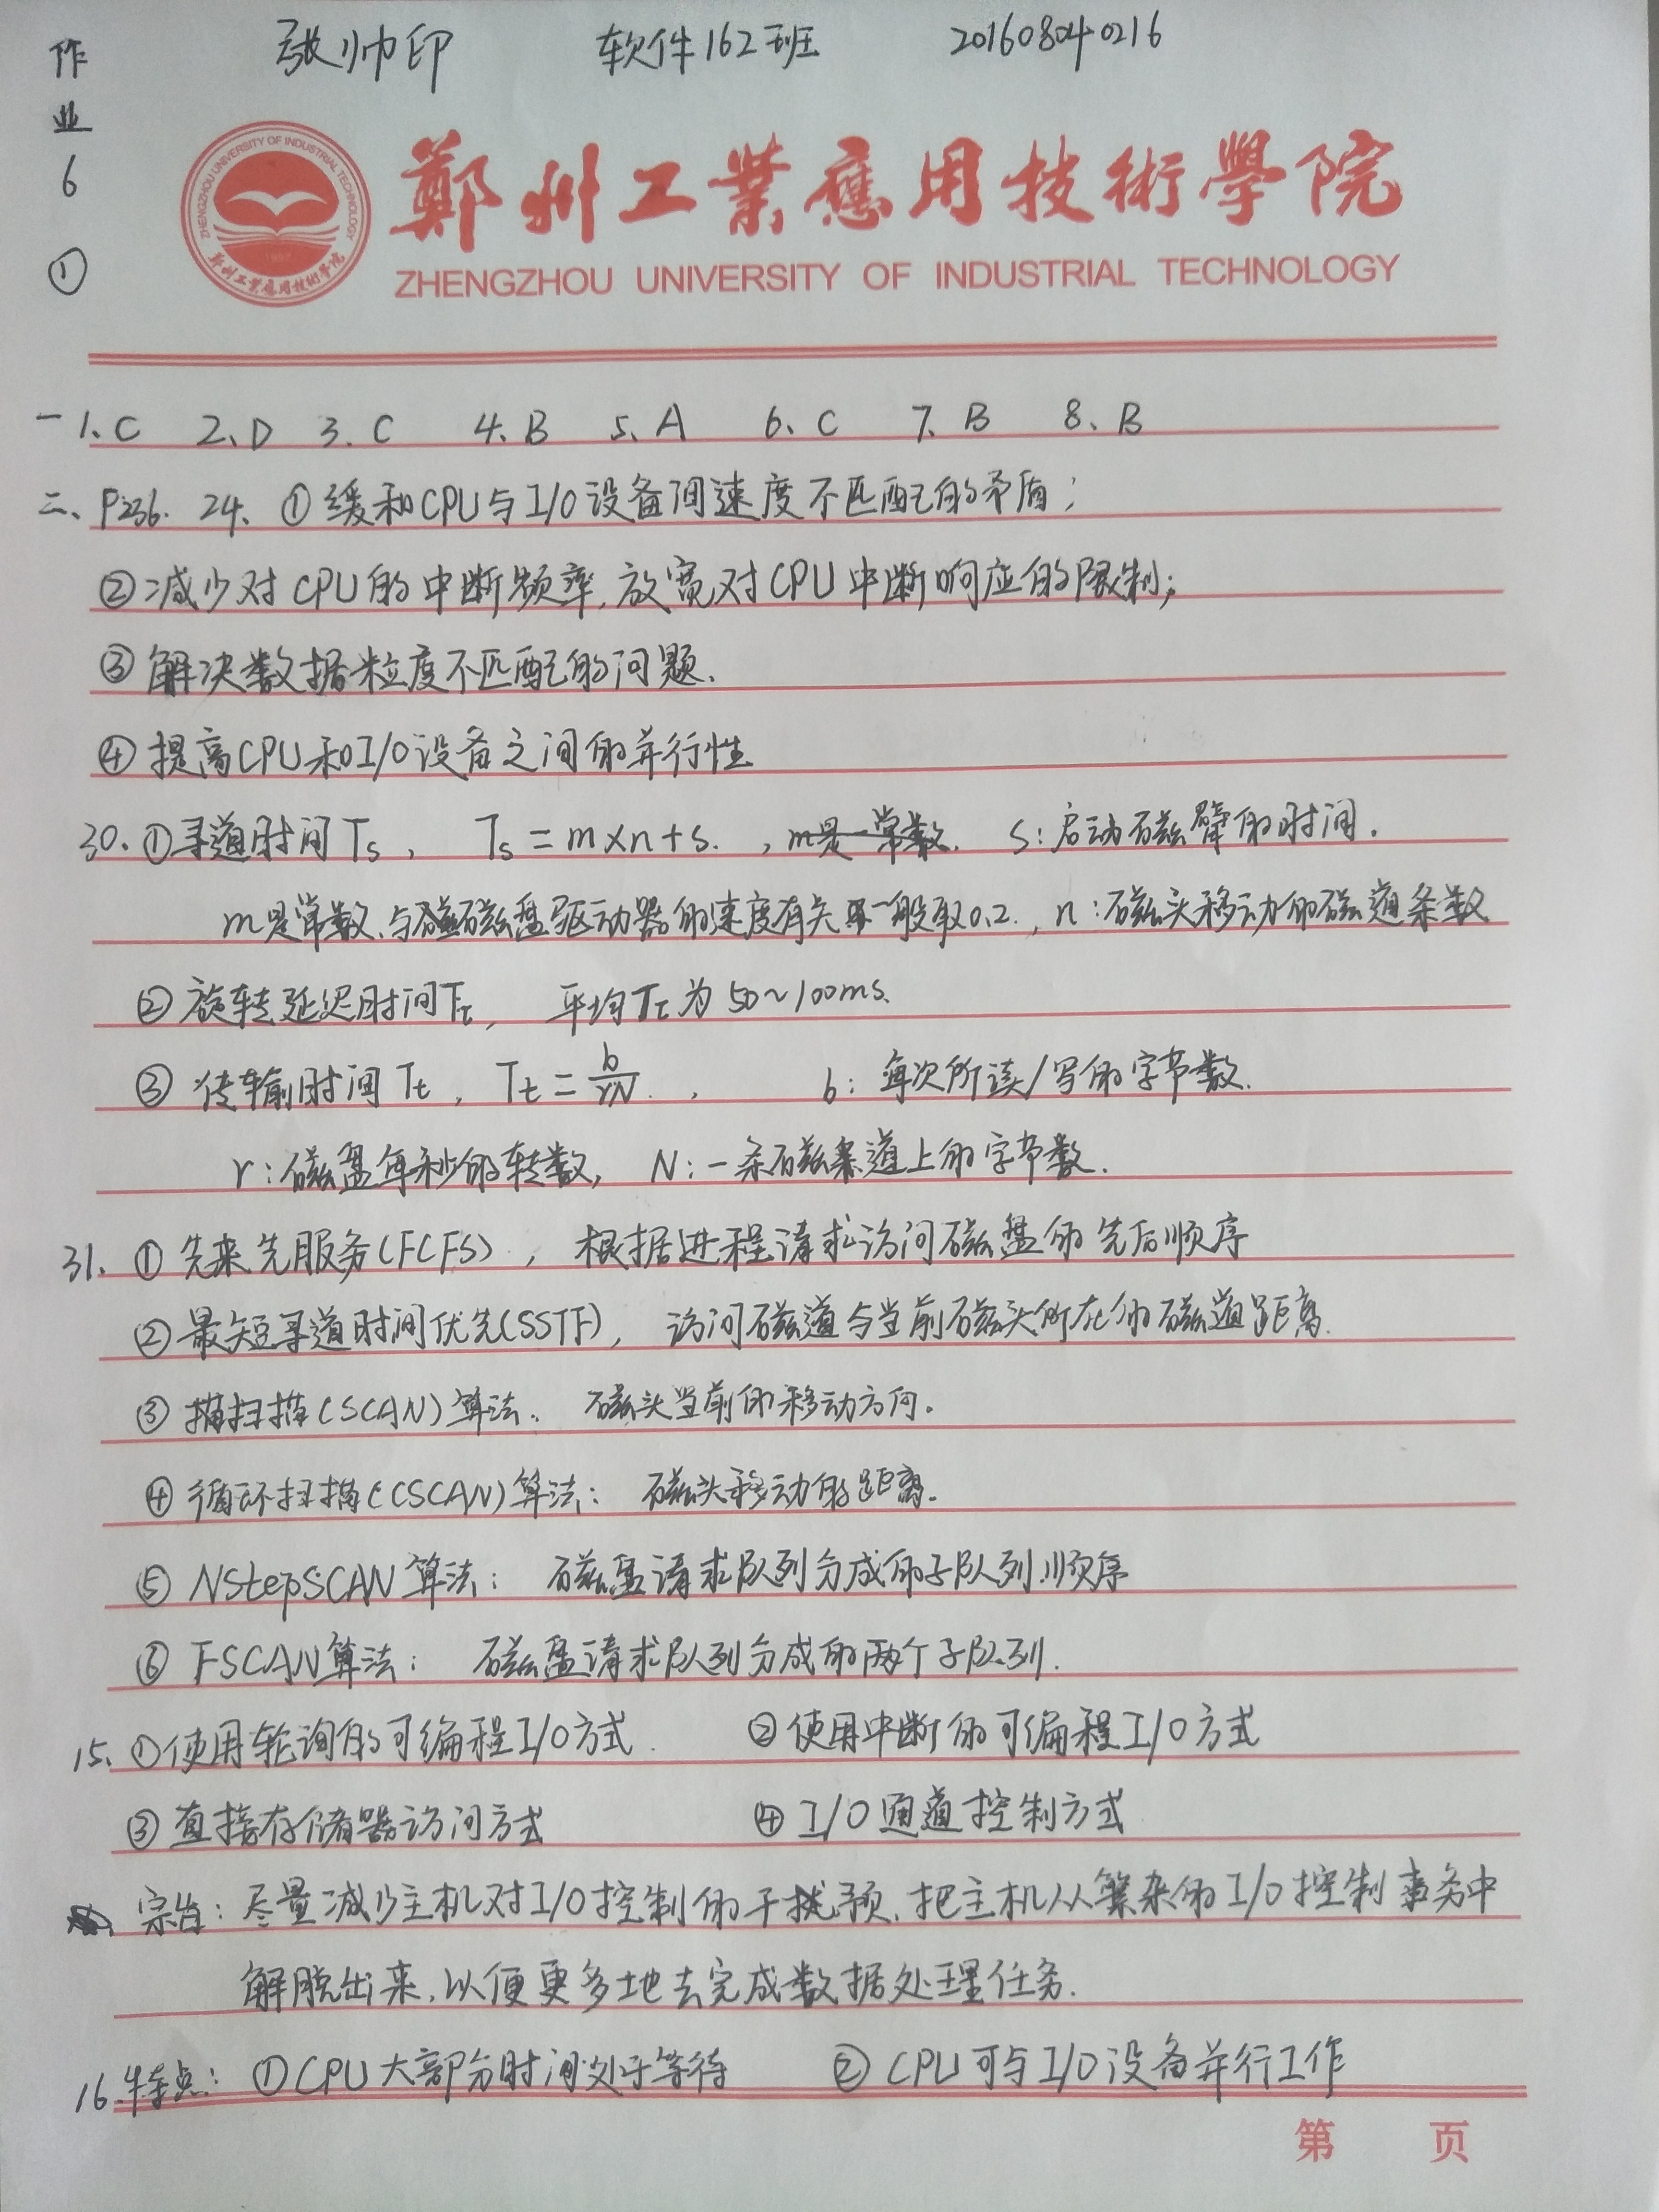 作业6 ①
张帅印 软件162班 201608040216
ZHENGZHOU UNIVERSITY OF INDUSTRIAL TECHNOLOGY
郑州工业应用技术学院
1957
鄭州工業應用技術學院
ZHENGZHOU UNIVERSITY OF INDUSTRIAL TECHNOLOGY
一 1、C 2、D 3、C 4、B 5、A 6、C 7、B 8、B
二、P236. 24、①缓和CPU与I/O设备间速度不匹配的矛盾;
②减少对CPU的中断频率,放宽对CPU中断响应的限制;
③解决数据粒度不匹配的问题.
④提高CPU和I/O设备之间的并行性
30、①寻道时间Ts, Ts=m×n+s. , m是一常数. s:启动磁臂的时间.
m是常数,与磁盘驱动器的速度有关 一般取0.2, n:磁头移动的磁道条数
②旋转延迟时间Tτ, 平均Tτ为50~100ms.
③传输时间Tt, Tt=b/rN. , b:每次所读/写的字节数.
r:磁盘每秒的转数, N:一条磁道上的字节数.
31、①先来先服务(FCFS), 根据进程请求访问磁盘的先后顺序
②最短寻道时间优先(SSTF), 访问磁道与当前磁头所在的磁道距离.
③扫描(SCAN)算法: 磁头当前的移动方向.
④循环扫描(CSCAN)算法: 磁头移动的距离.
⑤NStepSCAN算法: 磁盘请求队列分成的子队列顺序
⑥FSCAN算法: 磁盘请求队列分成的两个子队列.
15、①使用轮询的可编程I/O方式. ②使用中断的可编程I/O方式
③直接存储器访问方式 ④I/O通道控制方式
宗旨:尽量减少主机对I/O控制的干预,把主机从繁杂的I/O控制事务中
解脱出来,以便更多地去完成数据处理任务.
16、特点: ①CPU大部分时间处于等待 ②CPU可与I/O设备并行工作
第 页